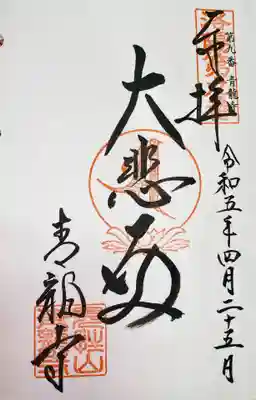 奉拝
第九番 青龍寺
令和五年四月二十五日
大悲殿
青龍寺